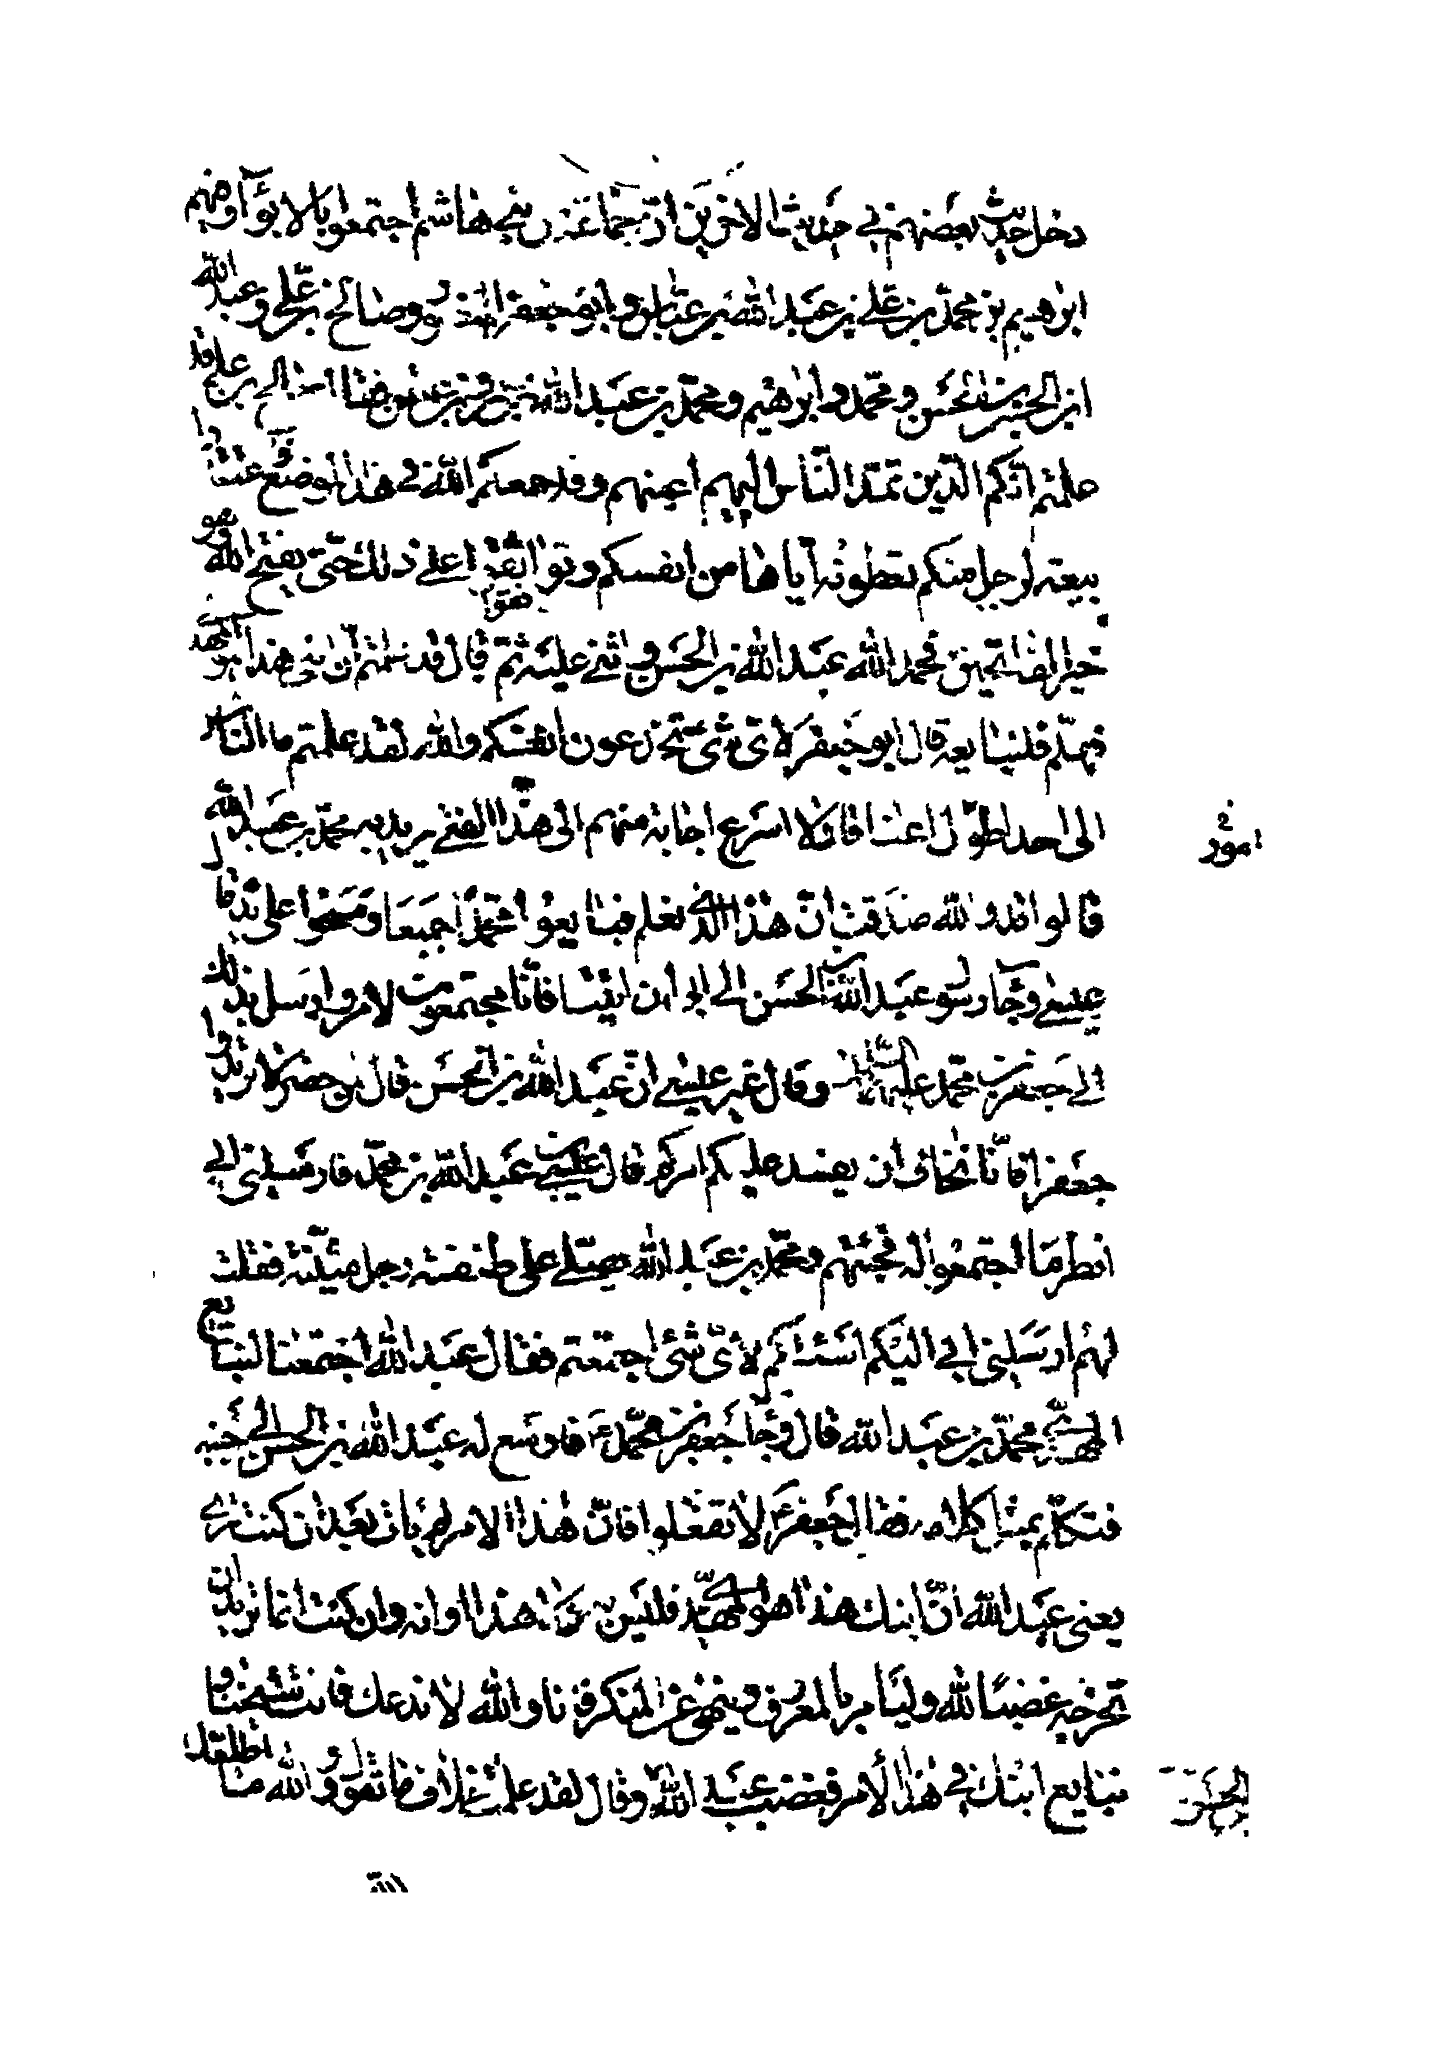 دخل حديث بعضهم في حديث الاخرين ان جماعة من بني هاشم اجتمعوا بالابواء وفيهم
ابرهيم بن محمد بن علي بن عبد الله بن عباس وابو جعفر المنصور وصالح بن علي وعبد الله
ابن الحسن بن الحسن ومحمد وابرهيم ومحمد بن عبد الله بن عمرو بن عثمن فقال صالح بن علي قد
علمتم انكم الذين تمد الناس اليهم اعينهم وقد جمعكم الله في هذا الموضع فاعقدوا
بيعة لرجل منكم تعطونه اياها من انفسكم وتواثقوا على ذلك حتى يفتح الله وهو
خير الفاتحين فحمد الله عبد الله بن الحسن واثنى عليه ثم قال قد علمتم ان ابني هذا هو المهدي
فهلم فلنبايعه قال ابو جعفر لاي شيء تخدعون انفسكم والله لقد علمتم ما الناس
الى احد اطول اعناقا ولا اسرع اجابة منهم الى هذا الفتى يريد به محمد بن عبد الله
امور
قالوا قد والله صدقت ان هذا الذي نعلم فبايعوا محمدا جميعا ومسحوا على يده قال
عيسى وجاء رسول عبد الله بن الحسن الى ابي ان ائتنا فانا مجتمعون لامر وارسل بذلك
الى جعفر بن محمد عليهما وقال غير عيسى ان عبد الله بن الحسن قال لمن حضر لا تريدوا
جعفرا فانا نخاف ان يفسد عليكم امركم قال عيسى بن عبد الله بن محمد فارسلني ابي
انظر ما اجتمعوا له فجئتهم ومحمد بن عبد الله يصلي على طنفسة رحل مثنية فقلت
لهم ارسلني ابي اليكم اسئلكم لاي شيء اجتمعتم فقال عبد الله اجتمعنا لنبايع
المهدي محمد بن عبد الله قال وجاء جعفر بن محمد ع فاوسع له عبد الله بن الحسن الى جنبه
فتكلم بمثل كلامه فقال جعفر ع لا تفعلوا فان هذا الامر لم يات بعد ان كنت ترى
يعني عبد الله ان ابنك هذا هو المهدي فليس به ولا هذا اوانه وان كنت انما تريد ان
تخرجه غضبا لله وليامر بالمعروف وينهى عن المنكر فانا والله لا ندعك فانت شيخنا و
نبايع ابنك في هذا الامر فغضب عبد الله وقال لقد علمت خلاف ما تقول و والله ما اطلعك
الحسن
الله